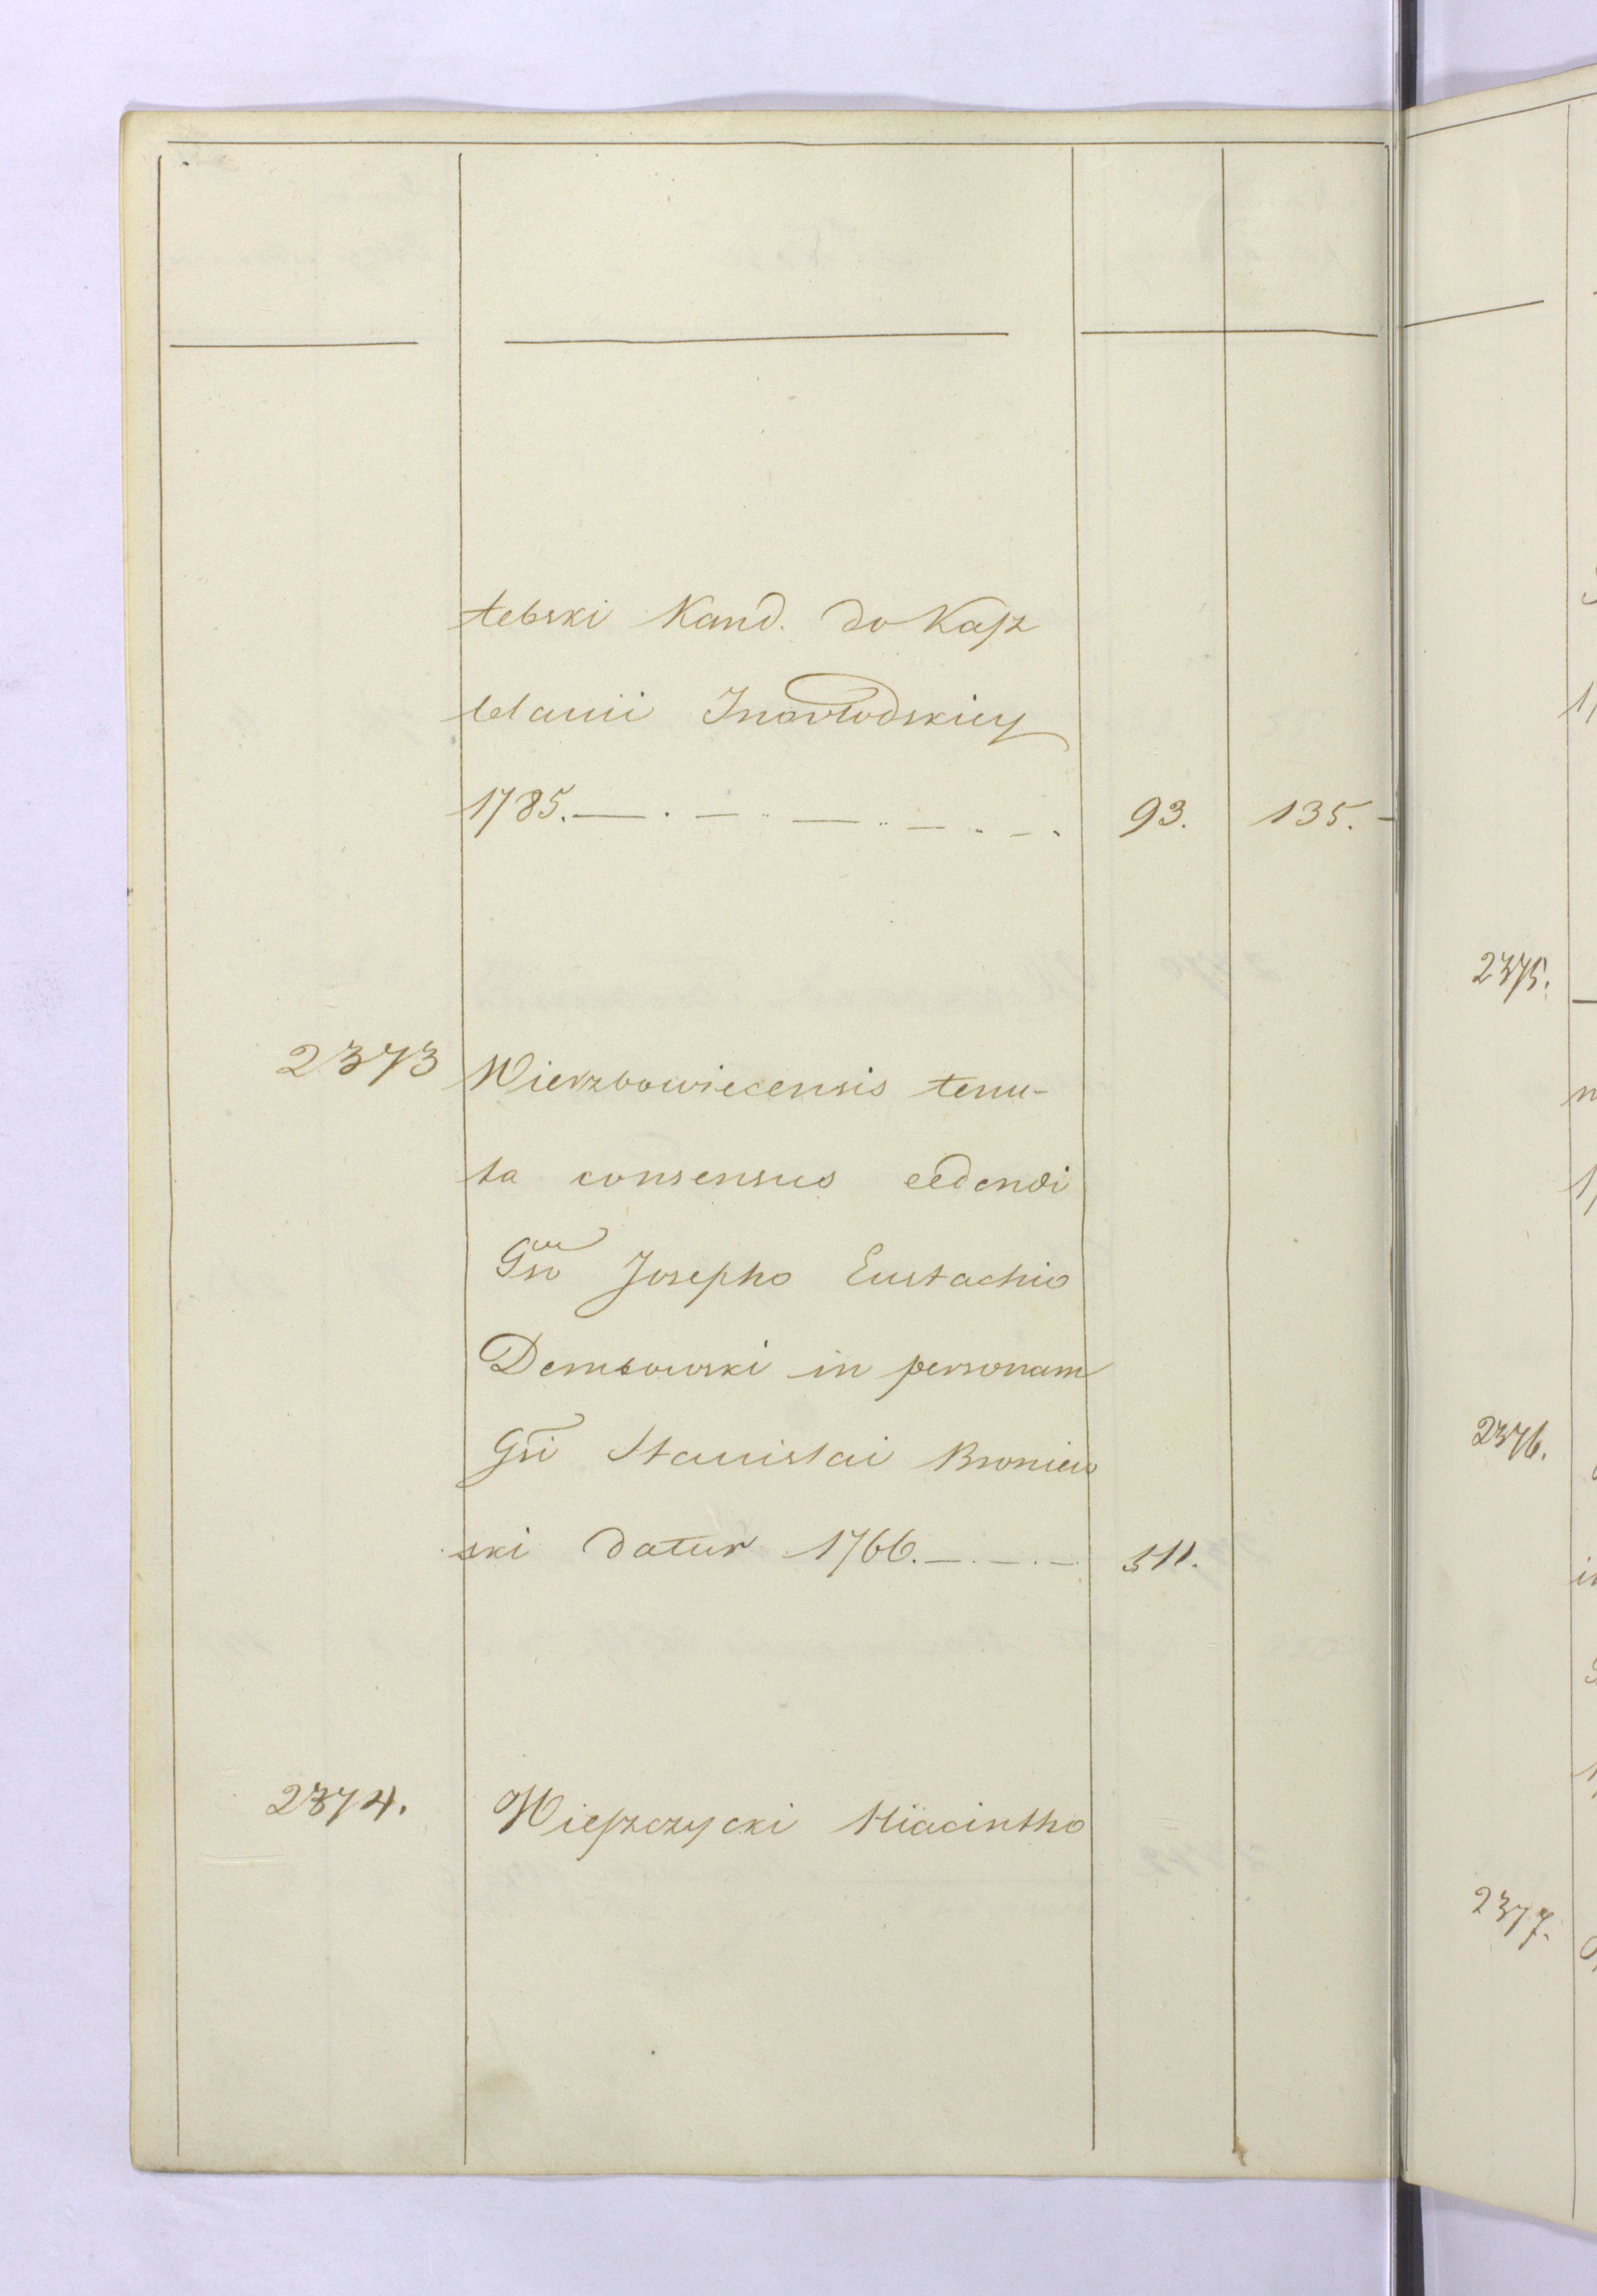 tebski Kand. do Kasz
telanii Inowłodskiey
1785. — . — . — . — . — . 93. 135. -
2373 Wierzbowiecensis tenu-
ta consensus cedendi
Gso Josepho Eustachio
Dembowski in personam
Gsi Stanislai Broniew
ski datur 1766. — . — . — 311.
2374. Wieszczycki Hiacintho
2375.
2376.
2377.